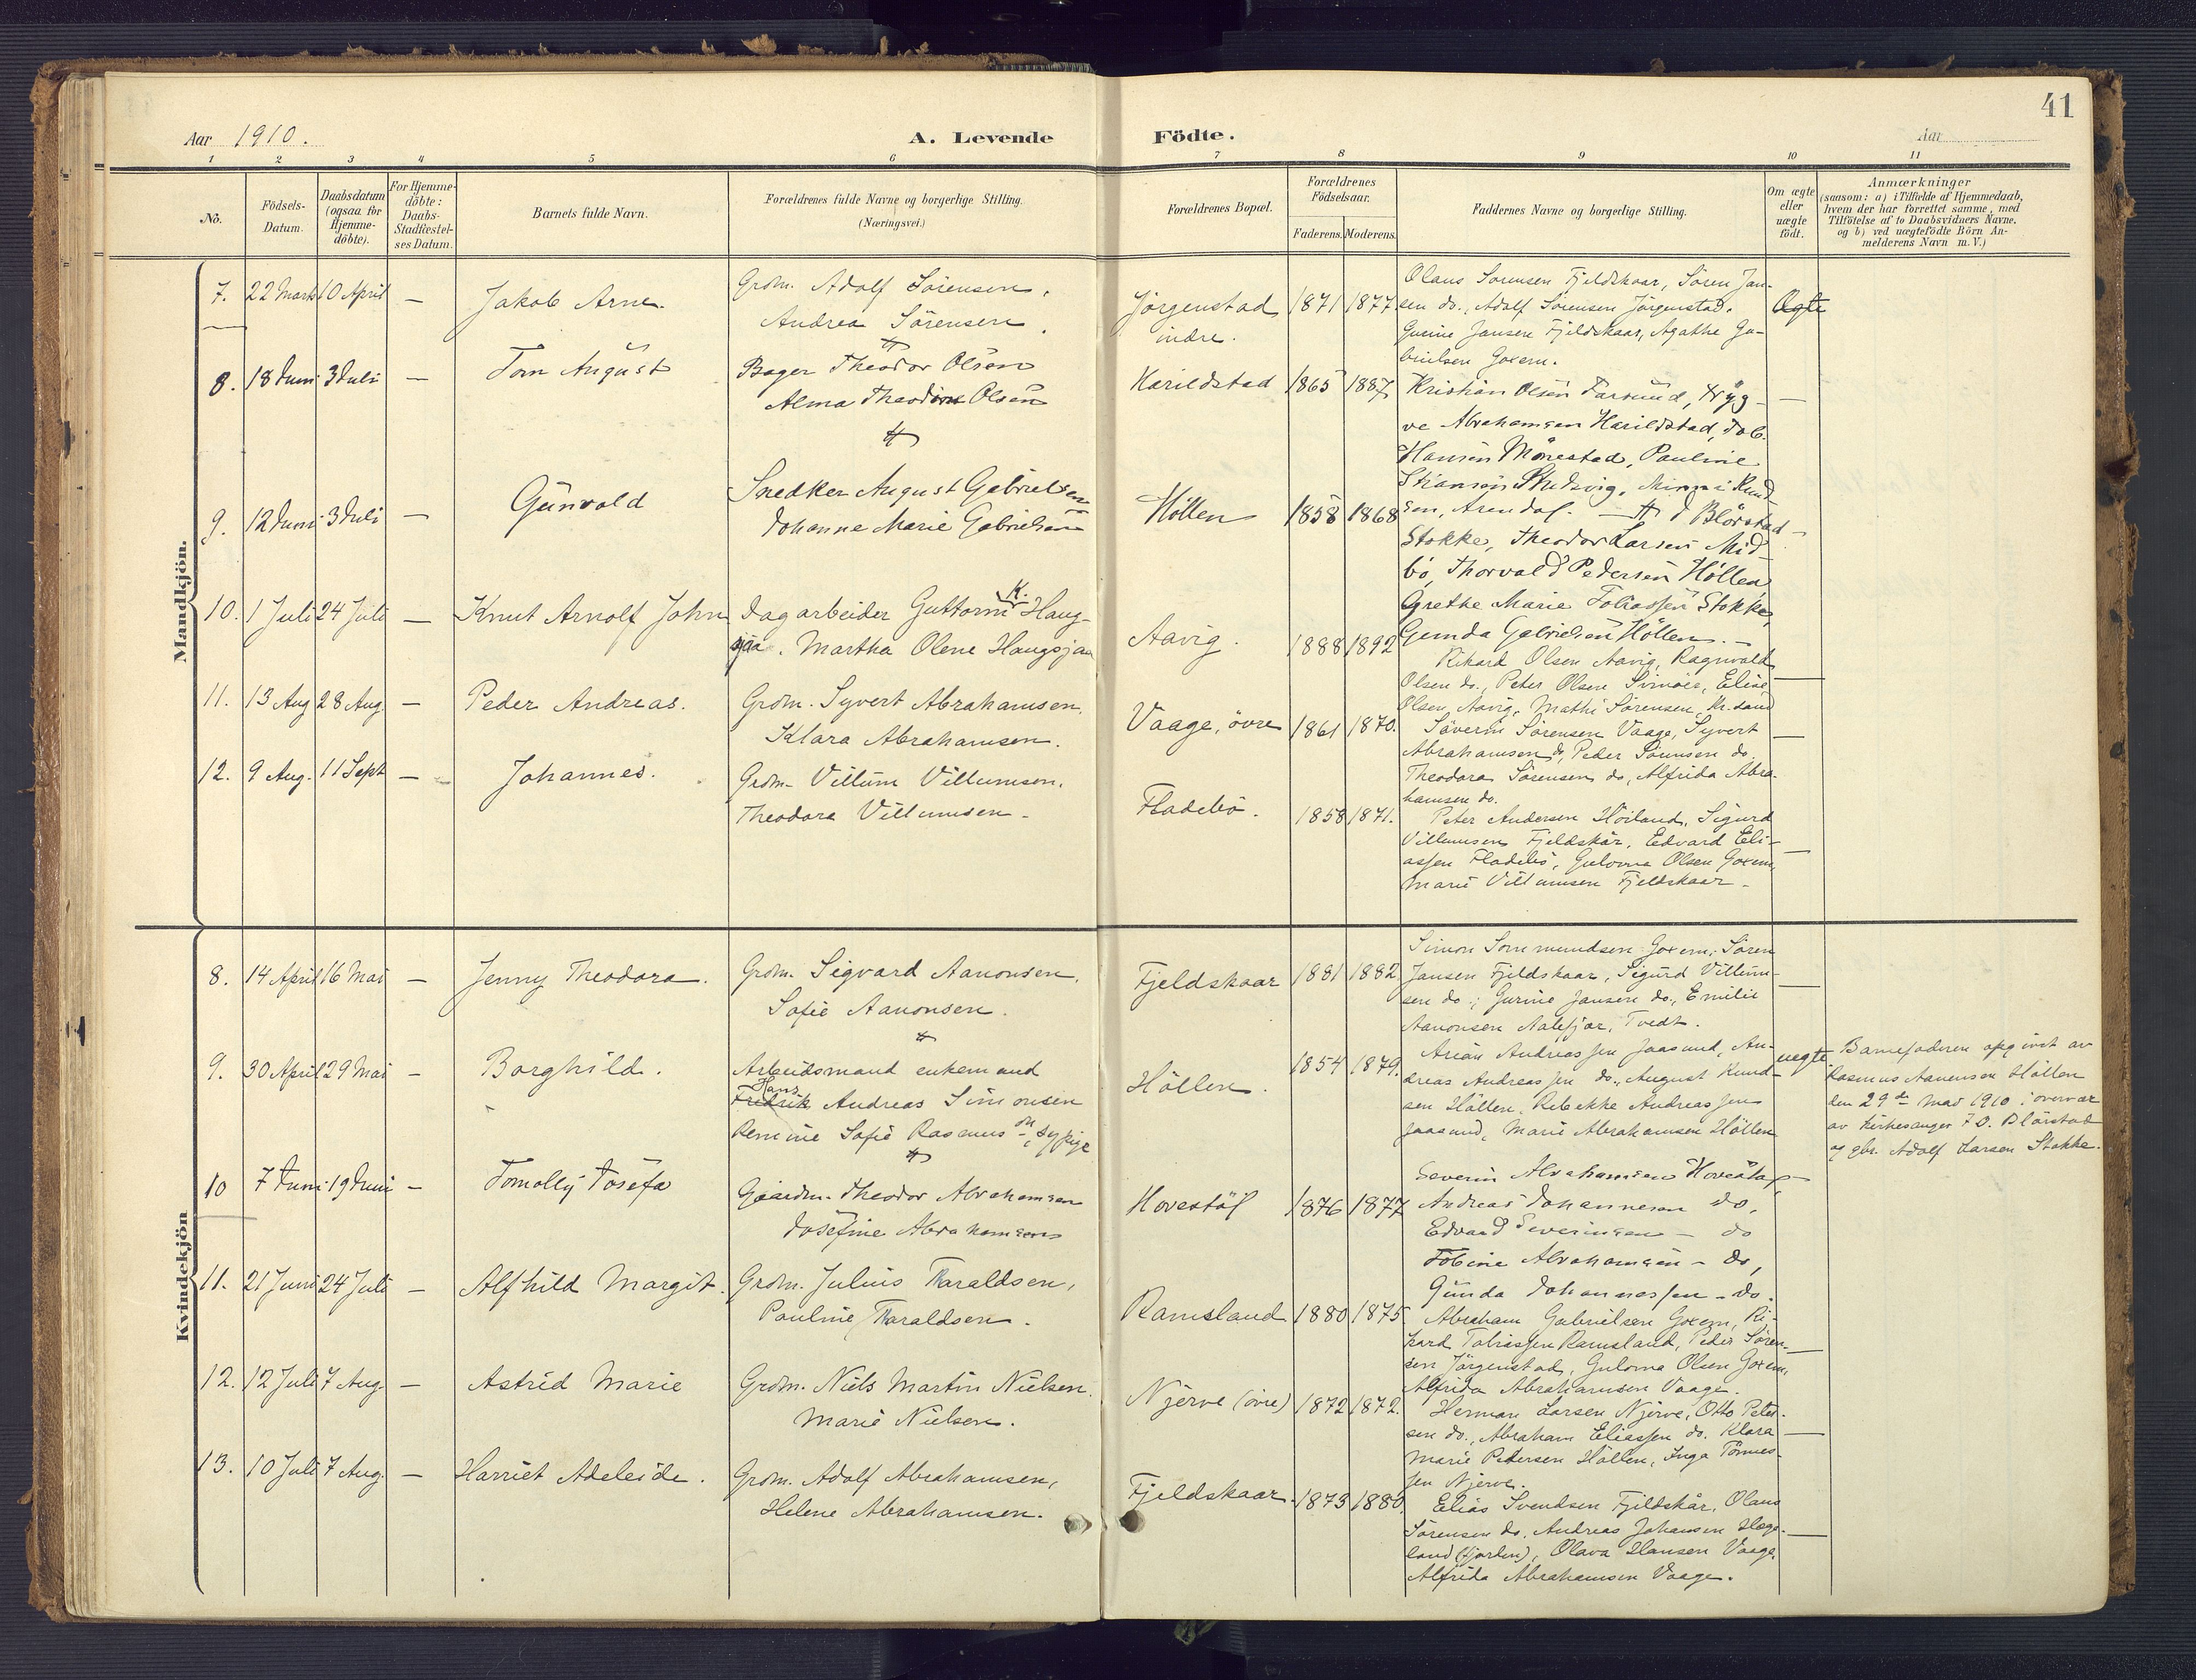 41
Aar 1910.
A. Levende Födte.
Aar
1 2 3 4 5 6 7 8 9 10 11
No.
Födsels-Datum.
Daabsdatum (ogsaa for Hjemme-döbte).
For Hjemme-döbte: Daabs-Stadfæstel-ses Datum.
Barnets fulde Navn.
Forældrenes fulde Navne og borgerlige Stilling.
(Næringsvei.)
Forældrenes Bopæl.
Forældrenes Födselsaar.
Faderens. Moderens.
Faddernes Navne og borgerlige Stilling.
Om ægte eller uægte födt.
Anmærkninger
(saasom: a) i Tilfælde af Hjemmedaab,
hvem der har forrettet samme, med
Tilföielse af to Daabsvidners Navne,
og b) ved uægtefödte Börn An-
melderens Navn m. V.)
Mandkjön.
7. 22 Marts 10 April — Jakob Arne.
Grdm. Adolf Sörensen,
Andrea Sörensen.
Jörgenstad
indre.
1871 1877.
Olaus Sorensen Fjeldskaar, Sören Jan-
sen do., Adolf Sörensen Jörgenstad.
Gurine Jansen Fjeldskaar, Agathe Ga-
brielsen Goxem.
Ægte
8. 18 Juni 3 Juli — Tom August
Bager Theodor Olsen
Alma Theodine Olsen
Harildstad
1865 1887
Kristian Olsen Farsund, Tryg-
ve Abrahamsen Harildstad, Tob.
Hansen Mönestad, Pauline
—
9. 12 Juni 3 Juli — Gunvald
Snedker August Gabrielsen
Johanne Marie Gabrielsen
Höllen
1858 1868
sen, Arendal. — J Blörstad
Stokke, Theodor Larsen Mid-
bö, Thorvald Pedersen Höllen
Grethe Marie Tobiassen Stokke,
Gunda Gabrielsen Höllen. —
10. 1 Juli 24 Juli — Knut Arnolf John
Dagarbeider Guttorm K. Haug-
sjaa, Martha Olene Haugsjaa
Aavig.
1888 1892
Rikard Olsen Aavig, Ragnvald
Olsen do., Peter Olsen Simoes, Elise
Olsen Aavig, Mathi Sörensen, Kr.sand
—
11. 13 Aug 28 Aug. — Peder Andreas.
Grdm. Syvert Abrahamsen,
Klara Abrahamsen.
Vaage, övre
1861 1870.
Söverin Sörensen Vaage, Syvert
Abrahamsen do, Peder Sörensen do.
Theodora Sörensen do, Alfrida Abra-
hamsen do.
—
12. 9 Aug. 11 Sept — Johannes.
Grdm. Villum Villumsen,
Theodora Villumsen.
Fladebö.
1858 1871.
Peter Andersen Höiland, Sigurd
Villumsen Fjeldskår, Edvard Eli-
assen Fladebö, Gulovna Olsen Goxem,
Marie Villumsen Fjeldskaar.
—
Kvindekjön
8. 14 April 16 Mai — Jenny Theodora.
Grdm. Sigvard Aanonsen,
Sofie Aanonsen.
Fjeldskaar
1881 1882
Simon Sommundsen Goxem, Sören
Jansen Fjeldskaar, Sigurd Villum-
sen do.; Gurine Jansen do., Emilie
Aanonsen Aalefjar, Tvedt.
—
9. 30 April 29 Mai — Borghild.
Arbeidsmand enkemand
Hans
Fredrik Andreas Simonsen
Remine Sofie Rasmus , sypige
Höllen.
1854 1879.
Arian Andreassen Jaasund, An-
dreas Andreassen do., August Knud-
sen Höllen, Rebekke Andreassen
Jaasund, Marie Abrahamsen Höllen
uegte
Barnefaderen opgivet av
Rasmus Aanensen Höllen
den 29de Mai 1910 i overvær
av Kirkesanger J. O. Blörstad
og gbr. Adolf Larsen Stokke.
10 7 Juni 19 Juni — Tomolly Josefa
Gaardm. Theodor Abrahamsen
Josefine Abrahamsen
Hovestöl
1876 1877
Severin Abrahamsen Hovestöl
Andreas Johannesen do.
Edvard Severinsen — do
Tobine Abrahamsen — do,
Gunda Johannessen — do.
—
11. 21 Juni 24 Juli — Alfhild Margit.
Grdm. Julius Taraldsen,
Pauline Taraldsen.
Ramsland
1880 1875
Abraham Gabrielsen Goxem, Ri-
kard Tobiassen Ramsland, Peder Sören-
sen Jörgenstad, Gulovna Olsen Goxem,
Alfrida Abrahamsen Vaage.
—
12. 12 Juli 7 Aug. — Astrid Marie
Grdm. Niels Martin Nielsen.
Marie Nielsen.
Njerve (övre)
1872 1872.
Herman Larsen Njerve, Otto Peter-
sen do., Abraham Eliassen do. Klara
Marie Petersen Höllen, Inga Tönnes-
sen Njerve.
—
13. 10 Juli 7 Aug. — Harriet Adeleide.
Grdm. Adolf Abrahamsen,
Helene Abrahamsen.
Fjeldskaar.
1873 1880.
Elias Svendsen Fjeldskår, Olaus
Sörensen do. Andreas Johansen Hæge-
land (fjorden), Olava Hansen Vaage,
Alfrida Abrahamsen Vaage.
—